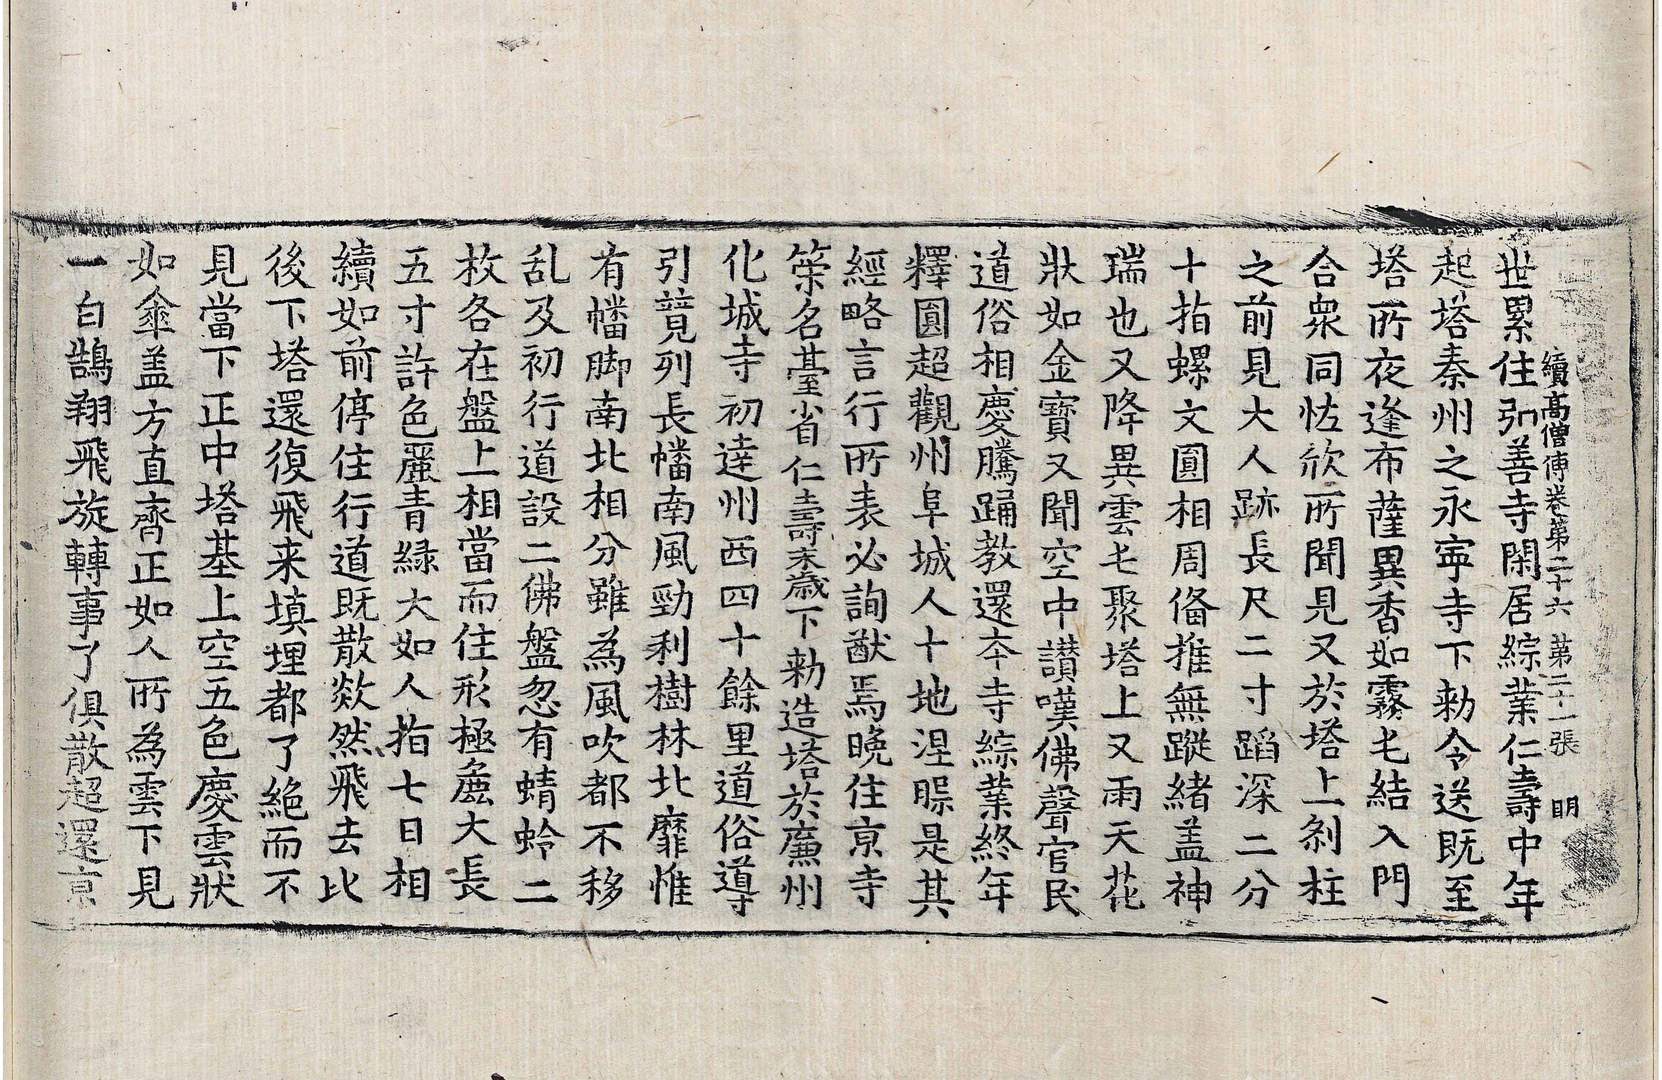 續高僧傳卷第二十六　第二十一張　明
世累住弘善寺閑居綜業仁壽中年
起塔秦州之永寧寺下勑令送既至
塔所夜逢布薩異香如霧乇結入門
合衆同怪欣所聞見又於塔上剎柱
之前見大人跡長尺二寸蹈深二分
十指螺文圓相周俻推無蹤緒盖神
瑞也又降異雲乇聚塔上又雨天花
狀如金寶又聞空中讃嘆佛聲官民
道俗相慶騰踊教還本寺綜業終年
釋圓超觀州阜城人十地涅槃是其
經略言行所表必詢猷焉晩住京寺
策名臺省仁壽末歳下勑造塔於廉州
化城寺初達州西四十餘里道俗導
引競列長幡南風勁利樹林北靡惟
有幡脚南北相分雖為風吹都不移
乱及初行道設二佛盤忽有蜻蛉二
枚各在盤上相當而住形極麁大長
五寸許色麗青緑大如人指七日相
續如前停住行道既散欻然飛去比
後下塔還復飛来填埋都了絶而不
見當下正中塔基上空五色慶雲狀
如傘盖方直齊正如人所為雲下見
一白鵠翔飛旋轉事了俱散超還京